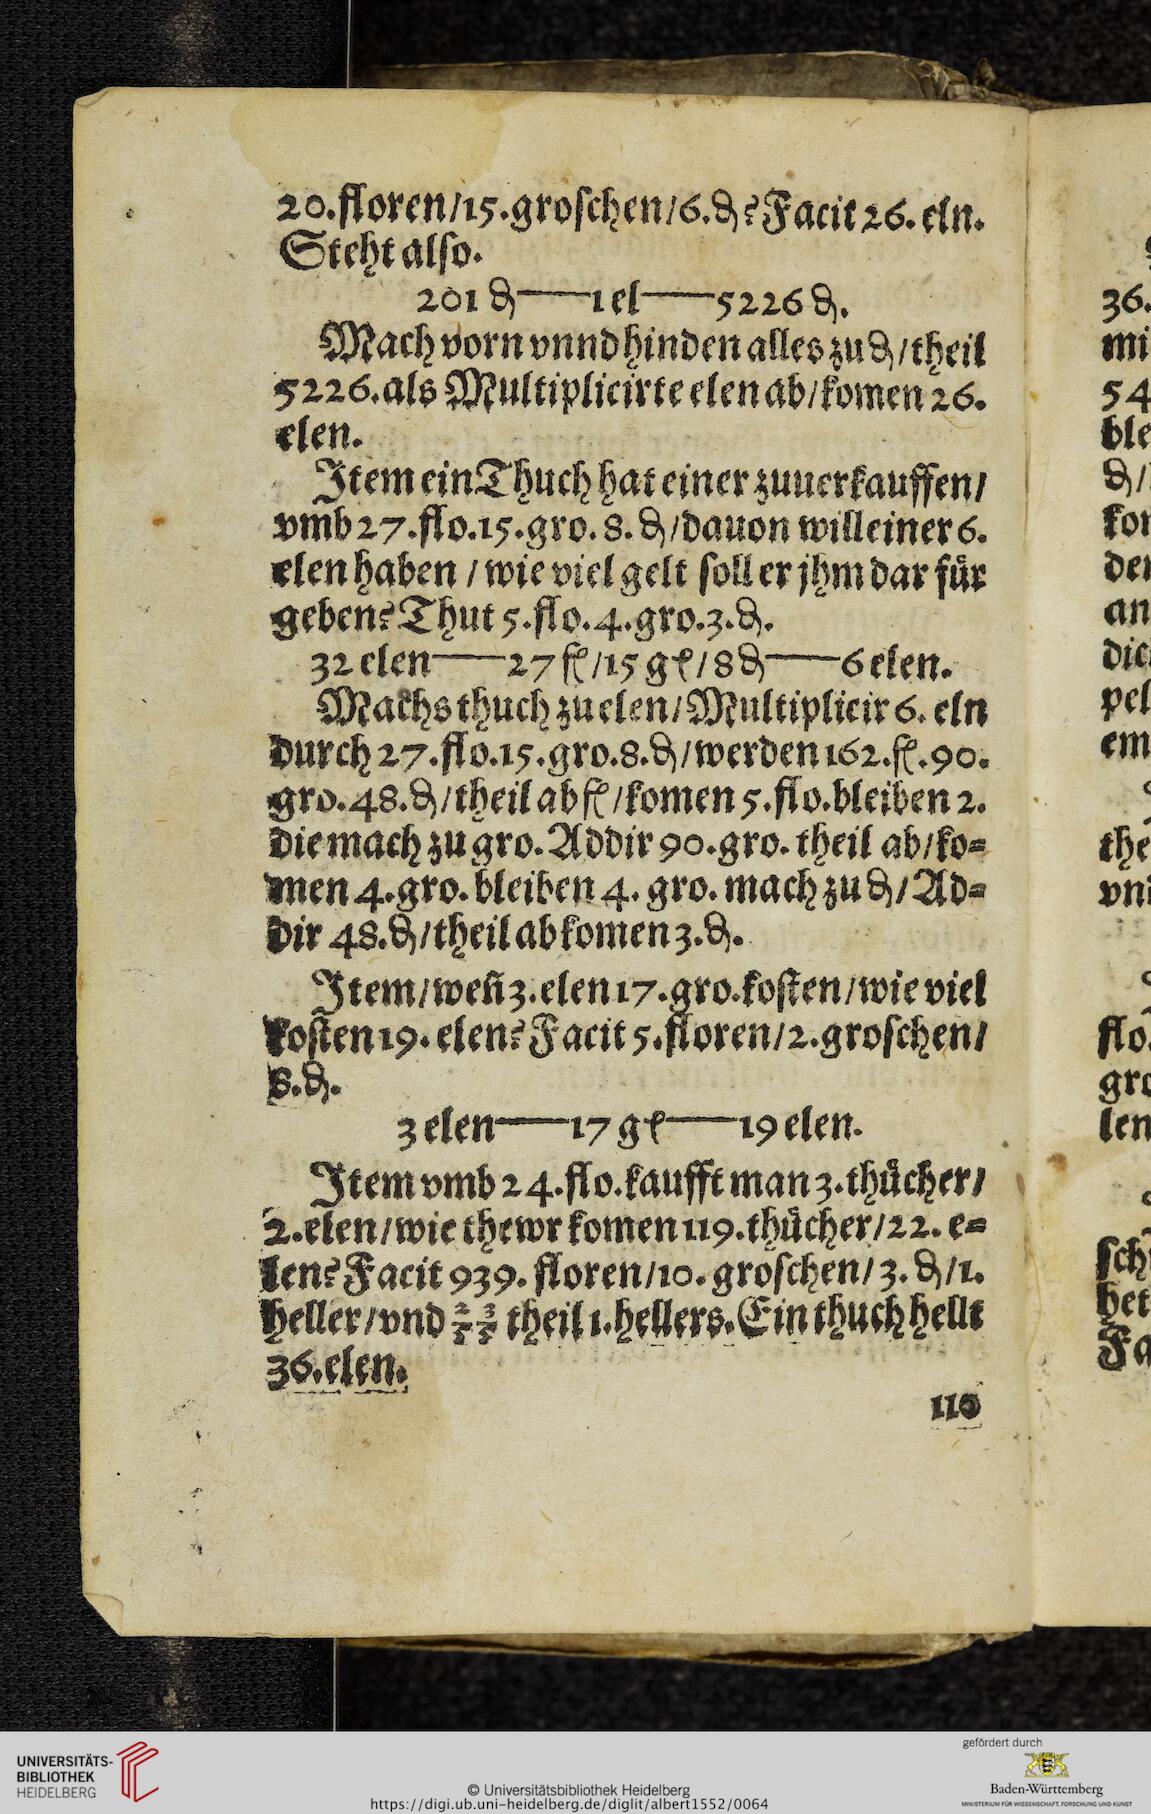 20.floren/15.groschen/6.₰?Facit 26. eln.
Steht also.
201 ₰——1 el——5226 ₰.
Mach vorn vnnd hinden alles zu ₰/theil
5226.als Multiplicirte elen ab/komen 26.
elen.
Item ein Thuch hat einer zuuerkauffen/
vmb 27.flo.15.gro.8.₰/dauon will einer 6.
elen haben / wie viel gelt soll er jhm dar für
geben?Thut 5.flo.4.gro.3.₰.
32 elen——27 fl/15 gl/8 ₰——6 elen.
Machs thuch zu elen/Multiplicir 6. eln
durch 27.flo.15.gro.8.₰/werden 162.fl.90.
gro.48.₰/theil ab fl/komen 5.flo.bleiben 2.
die mach zu gro. Addir 90.gro. theil ab/ko=
men 4.gro. bleiben 4. gro. mach zu ₰/Ad=
dir 48.₰/theil ab komen 3.₰.
Item/weñ 3.elen 17.gro.kosten/wie viel
kosten 19. elen?Facit 5.floren/2.groschen/
8.₰.
3 elen——17 gl——19 elen.
Item vmb 24.flo.kaufft man 3.thücher/
2.elen/wie thewr komen 119.thücher/22. e=
len?Facit 939. floren/10. groschen/3. ₰/1.
heller/vnd 2/5 3/5 theil 1.hellers.Ein thuch hellt
36.elen.
110
36.
mi
54
ble
₰/
kor
der
an
dic
pel
em
the
vni
flo.
gro
len
sch
het
Fa
UNIVERSITÄTS-
BIBLIOTHEK
HEIDELBERG
© Universitätsbibliothek Heidelberg
https://digi.ub.uni-heidelberg.de/diglit/albert1552/0064
gefördert durch
Baden-Württemberg
MINISTERIUM FÜR WISSENSCHAFT, FORSCHUNG UND KUNST